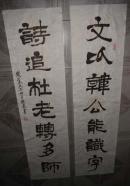 文以韓公能識字
詩追杜老轉多師